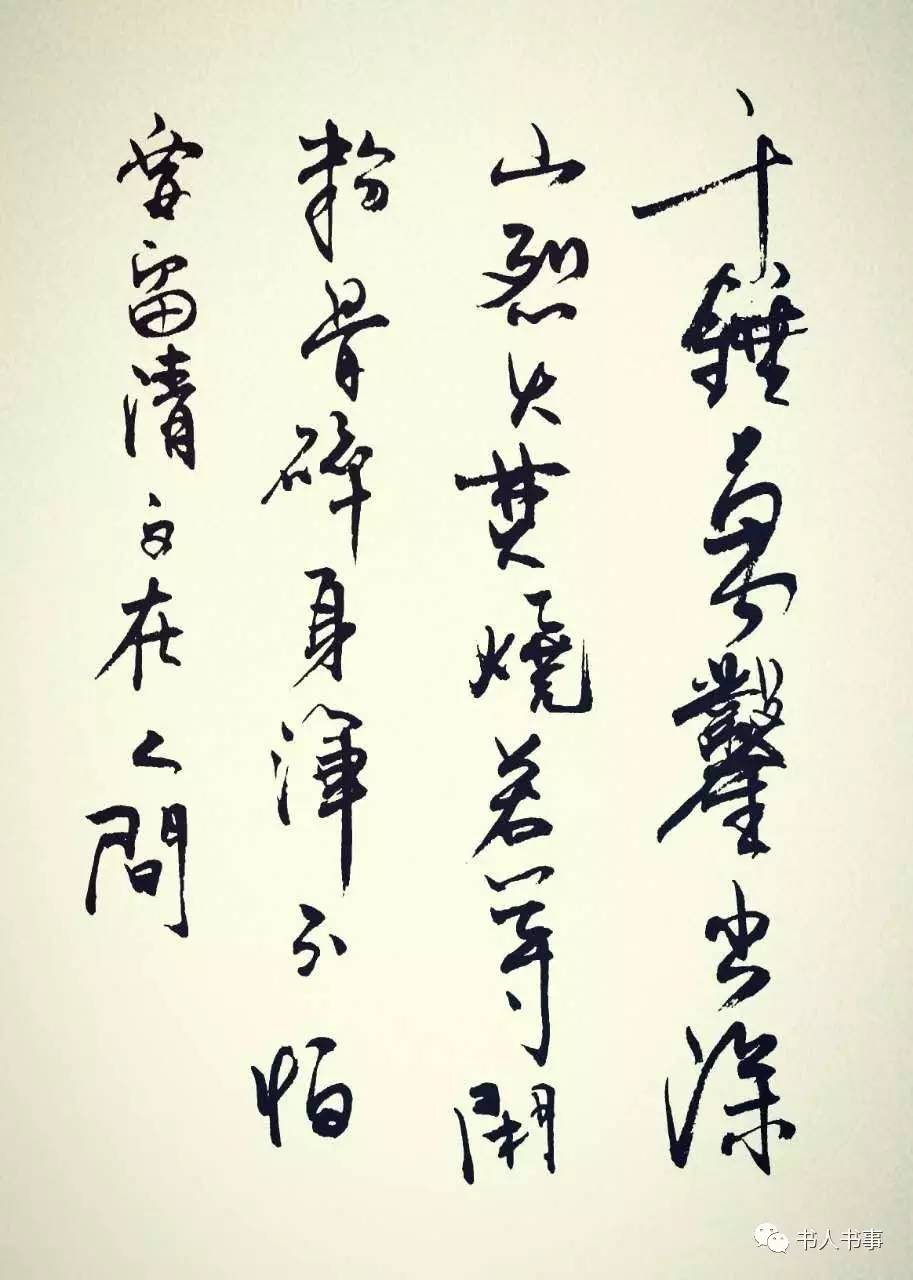 千錘萬鑿出深
山烈火焚燒若等閑
粉骨碎身渾不怕
要留清白在人間
书人书事